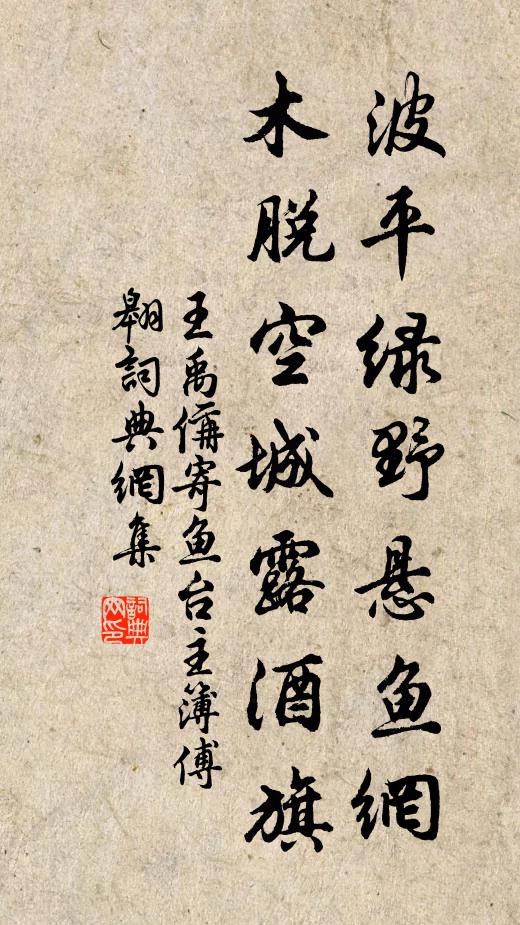 波平绿野悬鱼網
木脱空城露酒旗
王禹偁寄鱼台主簿傅
翱詞典網集
詞典
网印